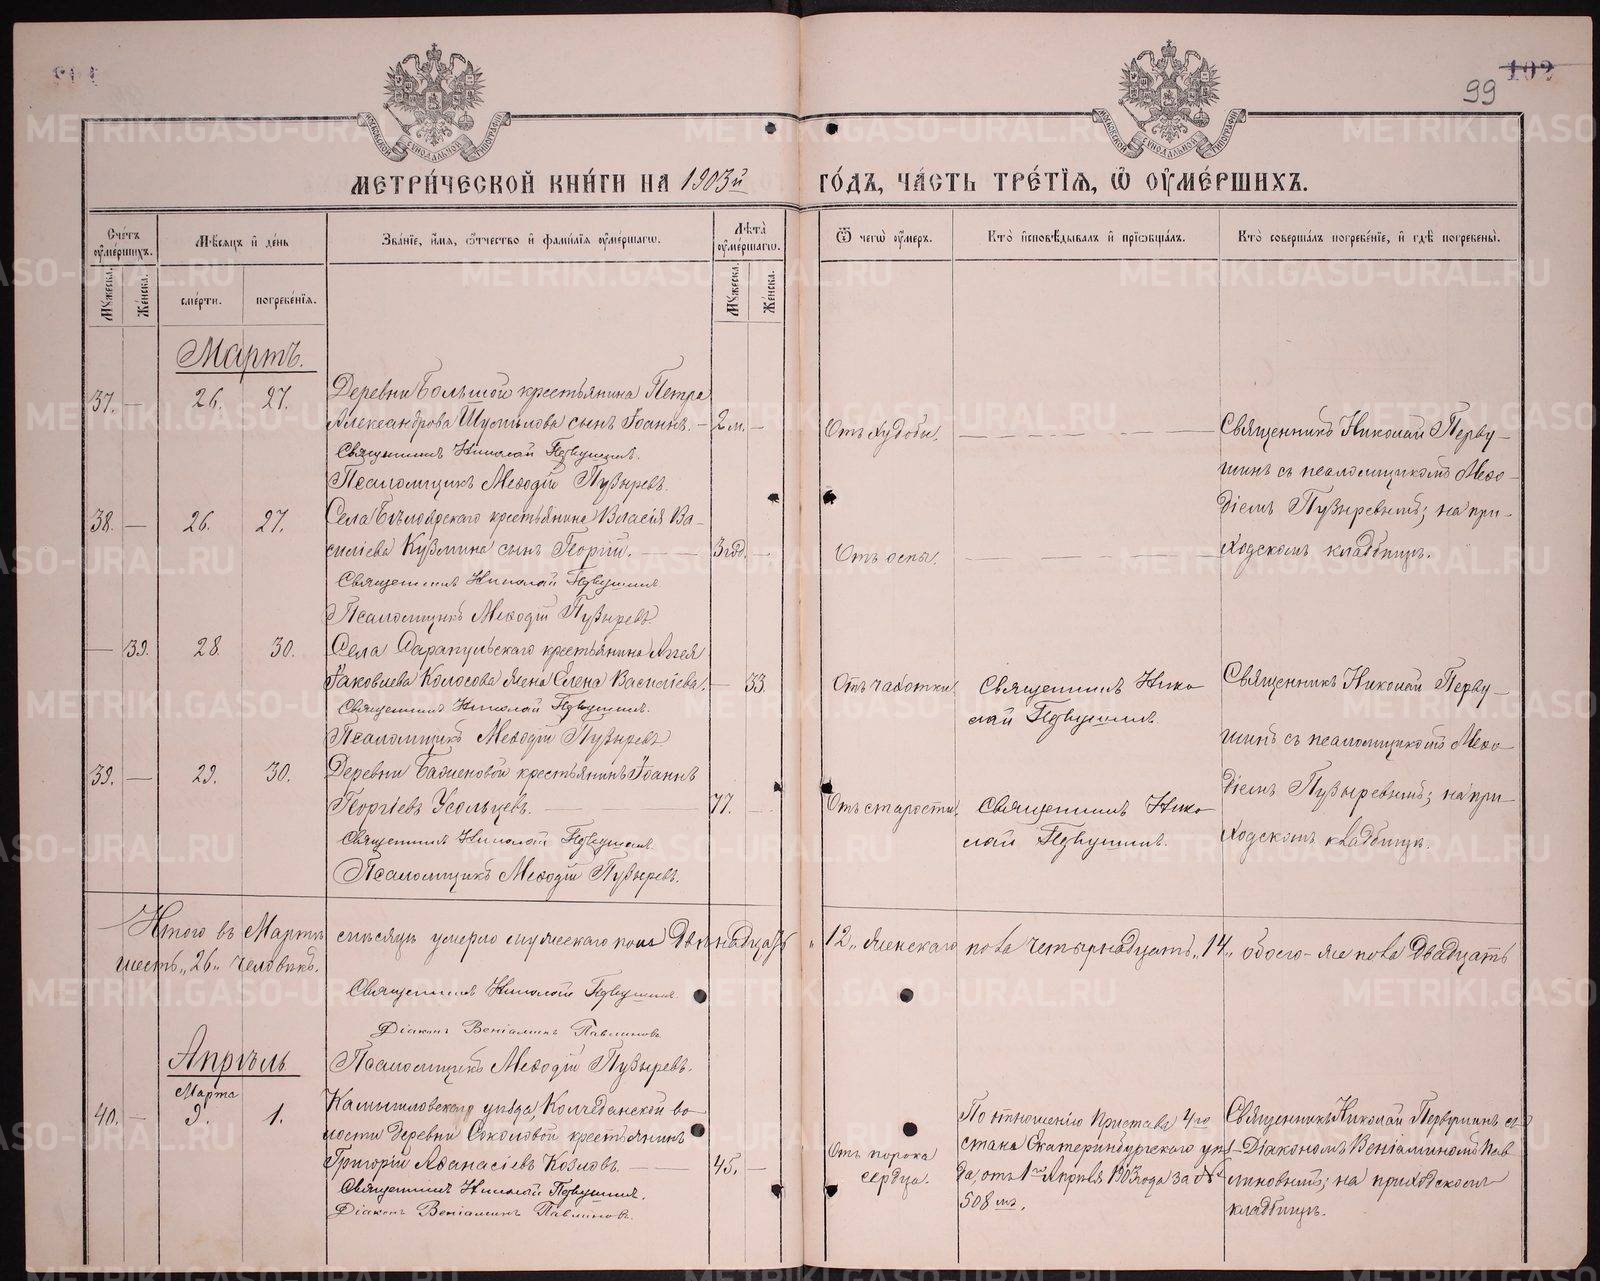 99
102
МЕТРИЧЕСКОЙ КНИГИ НА 1903й ГОДЪ, ЧАСТЬ ТРЕТІЯ, Ѿ ОУМЕРШИХЪ.
Счетъ оумершихъ.
Мужеска.
Женска.
Мѣсяцъ и день
смерти.
погребенія.
Званіе, имя, ѿтчество и фамилія оумершагѡ.
Лѣта оумершагѡ.
Мужеска.
Женска.
Ѿ чегѡ оумеръ.
Кто исповѣдывалъ и пріѡбщалъ.
Кто совершалъ погребеніе, и гдѣ погребены.
Мартъ.
37. — 26. 27.
Деревни Большой крестьянина Петра
Александрова Шумилова сынъ Іоаннъ. — 2 м. —
Священникъ Николай Первушинъ.
Псаломщикъ Меѳодій Пузыревъ.
Отъ худобы.
Священникъ Николай Перву-
шинъ съ псаломщикомъ Меѳо-
діемъ Пузыревымъ; на при-
ходскомъ кладбищѣ.
38. — 26. 27.
Села Бѣлоярскаго крестьянина Власія Ва-
силіева Кузмина сынъ Георгій. — 3 год. —
Священникъ Николай Первушинъ
Псаломщикъ Меѳодій Пузыревъ.
Отъ оспы.
— 39. 28. 30.
Села Сарапульскаго крестьянина Аггея
Іаковлева Колосова жена Елена Василіева. — 33.
Священникъ Николай Первушинъ.
Псаломщикъ Меѳодій Пузыревъ
Отъ чахотки.
Священникъ Нико
лай Первушинъ.
Священникъ Николай Перву-
шинъ съ псаломщикомъ Меѳо-
діемъ Пузыревымъ; на при-
ходскомъ кладбищѣ.
39. — 29. 30.
Деревни Баженовой крестьянинъ Іоаннъ
Георгіевъ Усольцевъ. — 77. —
Священникъ Николай Первушинъ.
Псаломщикъ Меѳодій Пузыревъ.
Отъ старости.
Священникъ Нико
лай Первушинъ.
Итого въ Мартѣ мѣсяцѣ умерло мужескаго пола двѣнадцать „12„ женскаго пола четырнадцать „14„ обоего-же пола двадцать
шесть „26„ человѣкъ.
Священникъ Николай Первушинъ.
Діаконъ Веніаминъ Павлиновъ
Псаломщикъ Меѳодій Пузыревъ.
Апрѣль
Марта
40. — 9. 1.
Камышловскаго уѣзда, Колчеданской во-
лости деревни Соколовой крестьянинъ
Григорій Аѳанасіевъ Козловъ. — 45. —
Священникъ Николай Первушинъ.
Діаконъ Веніаминъ Павлиновъ.
Отъ порока
сердца.
По отношенію Пристава 4го
стана Екатеринбургскаго уѣз-
да, отъ 1го Апрѣля 1903 года за №
508 мъ.
Священникъ Николай Первушинъ съ
Діакономъ Веніаминомъ Пав
линовымъ; на приходскомъ
кладбищѣ.
METRIKI.GASO-URAL.RU